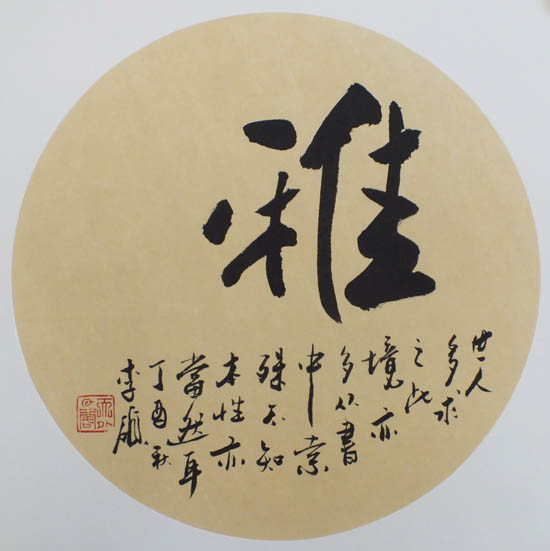 雅
世人
多求
之此
境亦
多从書
中索
殊不知
本性亦
當然耳
丁酉秋
李